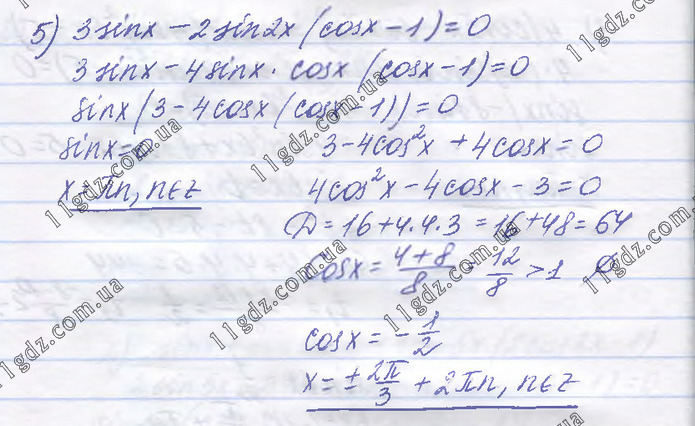 5) 3sinx - 2sin2x (cosx - 1) = 0
3sinx - 4sinx · cosx (cosx - 1) = 0
sinx (3 - 4cosx (cosx - 1)) = 0
sinx = 0 3 - 4cos²x + 4cosx = 0
x = πn, n∈z 4cos²x - 4cosx - 3 = 0
D = 16 + 4·4·3 = 16 + 48 = 64
cosx = (4+8)/8 = 12/8 > 1 ∅
cosx = -1/2
x = ± 2π/3 + 2πn, n∈z
11gdz.com.ua
11gdz.com.ua
11gdz.com.ua
11gdz.com.ua
11gdz.com.ua
11gdz.com.ua
11gdz.com.ua
11gdz.com.ua